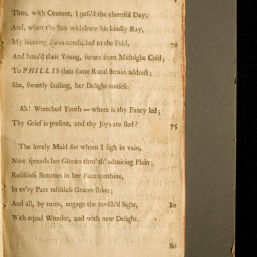 Thus, with Content, I pass'd the chearful Day;
And, when the Sun withdrew his kindly Ray,
My bleating Ewes conducted to the Fold, 70
And hous'd their Young, secure from Midnight Cold;
To PHILLIS then some Rural Strain addrest;
She, sweetly smiling, her Delight confest.
Ah! Wretched Youth — where is thy Fancy led;
Thy Grief is present, and thy Joys are fled? 75
The lovely Maid for whom I sigh in vain,
Now spreads her Glories thro' th' admiring Plain;
Resistless Beauties in her Face combine,
In ev'ry Part resistless Graces shine;
And all, by turns, engage the ravish'd Sight, 80
With equal Wonder, and with new Delight.
80